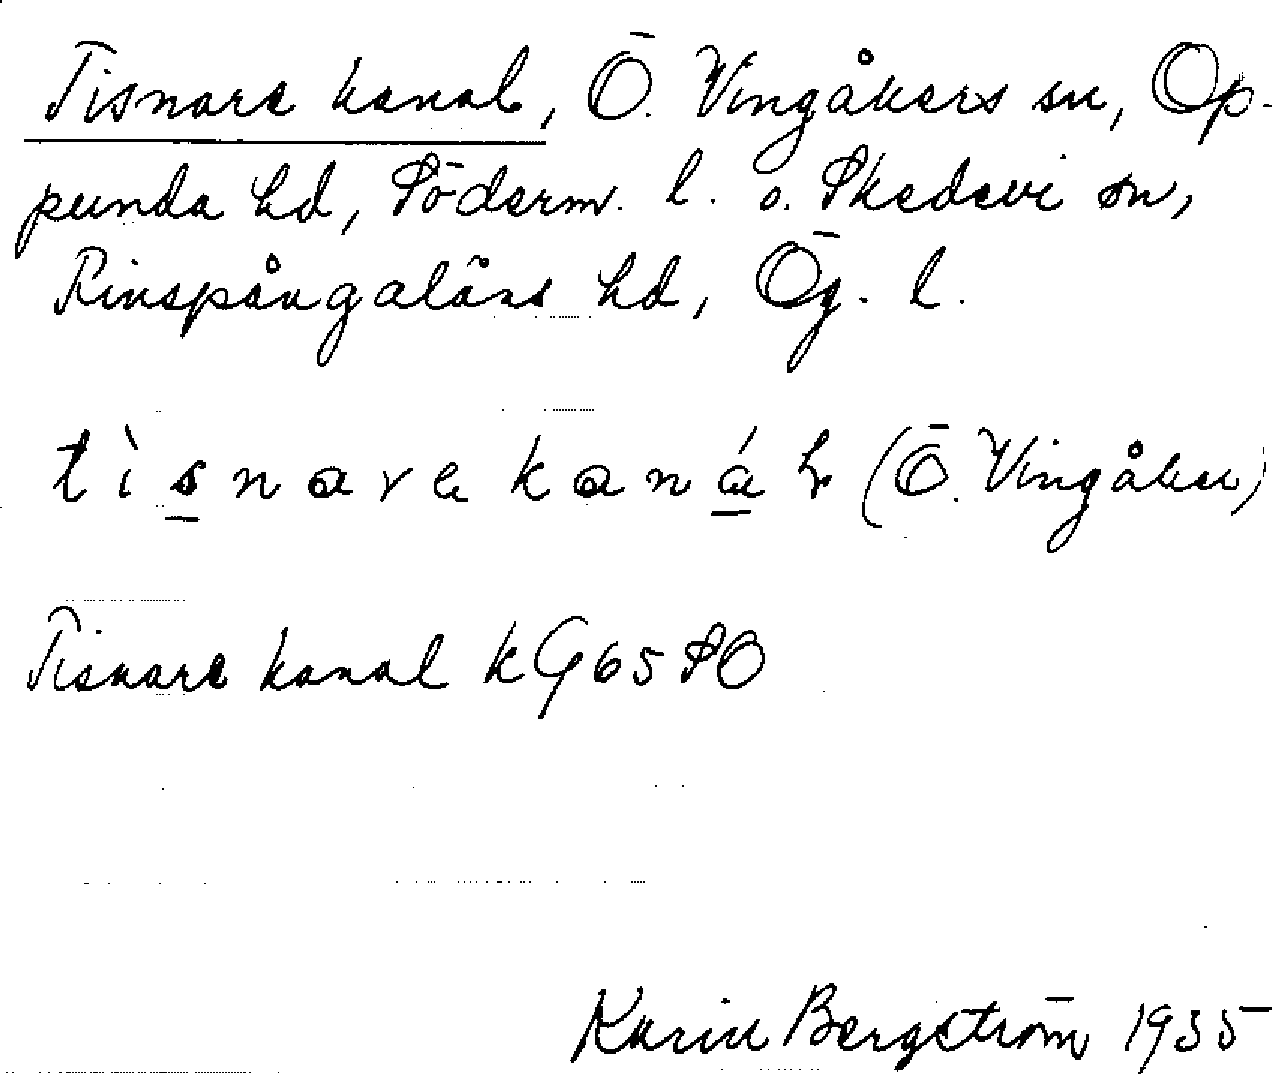 Tisnare kanal, Ö. Vingåkers sn, Op-
punda hd, Söderm. l. o. Skedevi sn,
Finspångaläns hd, Ög. l.
tìsnarekanál (Ö. Vingåker)
Tisnare kanal kG65SO
Karin Bergström 1935